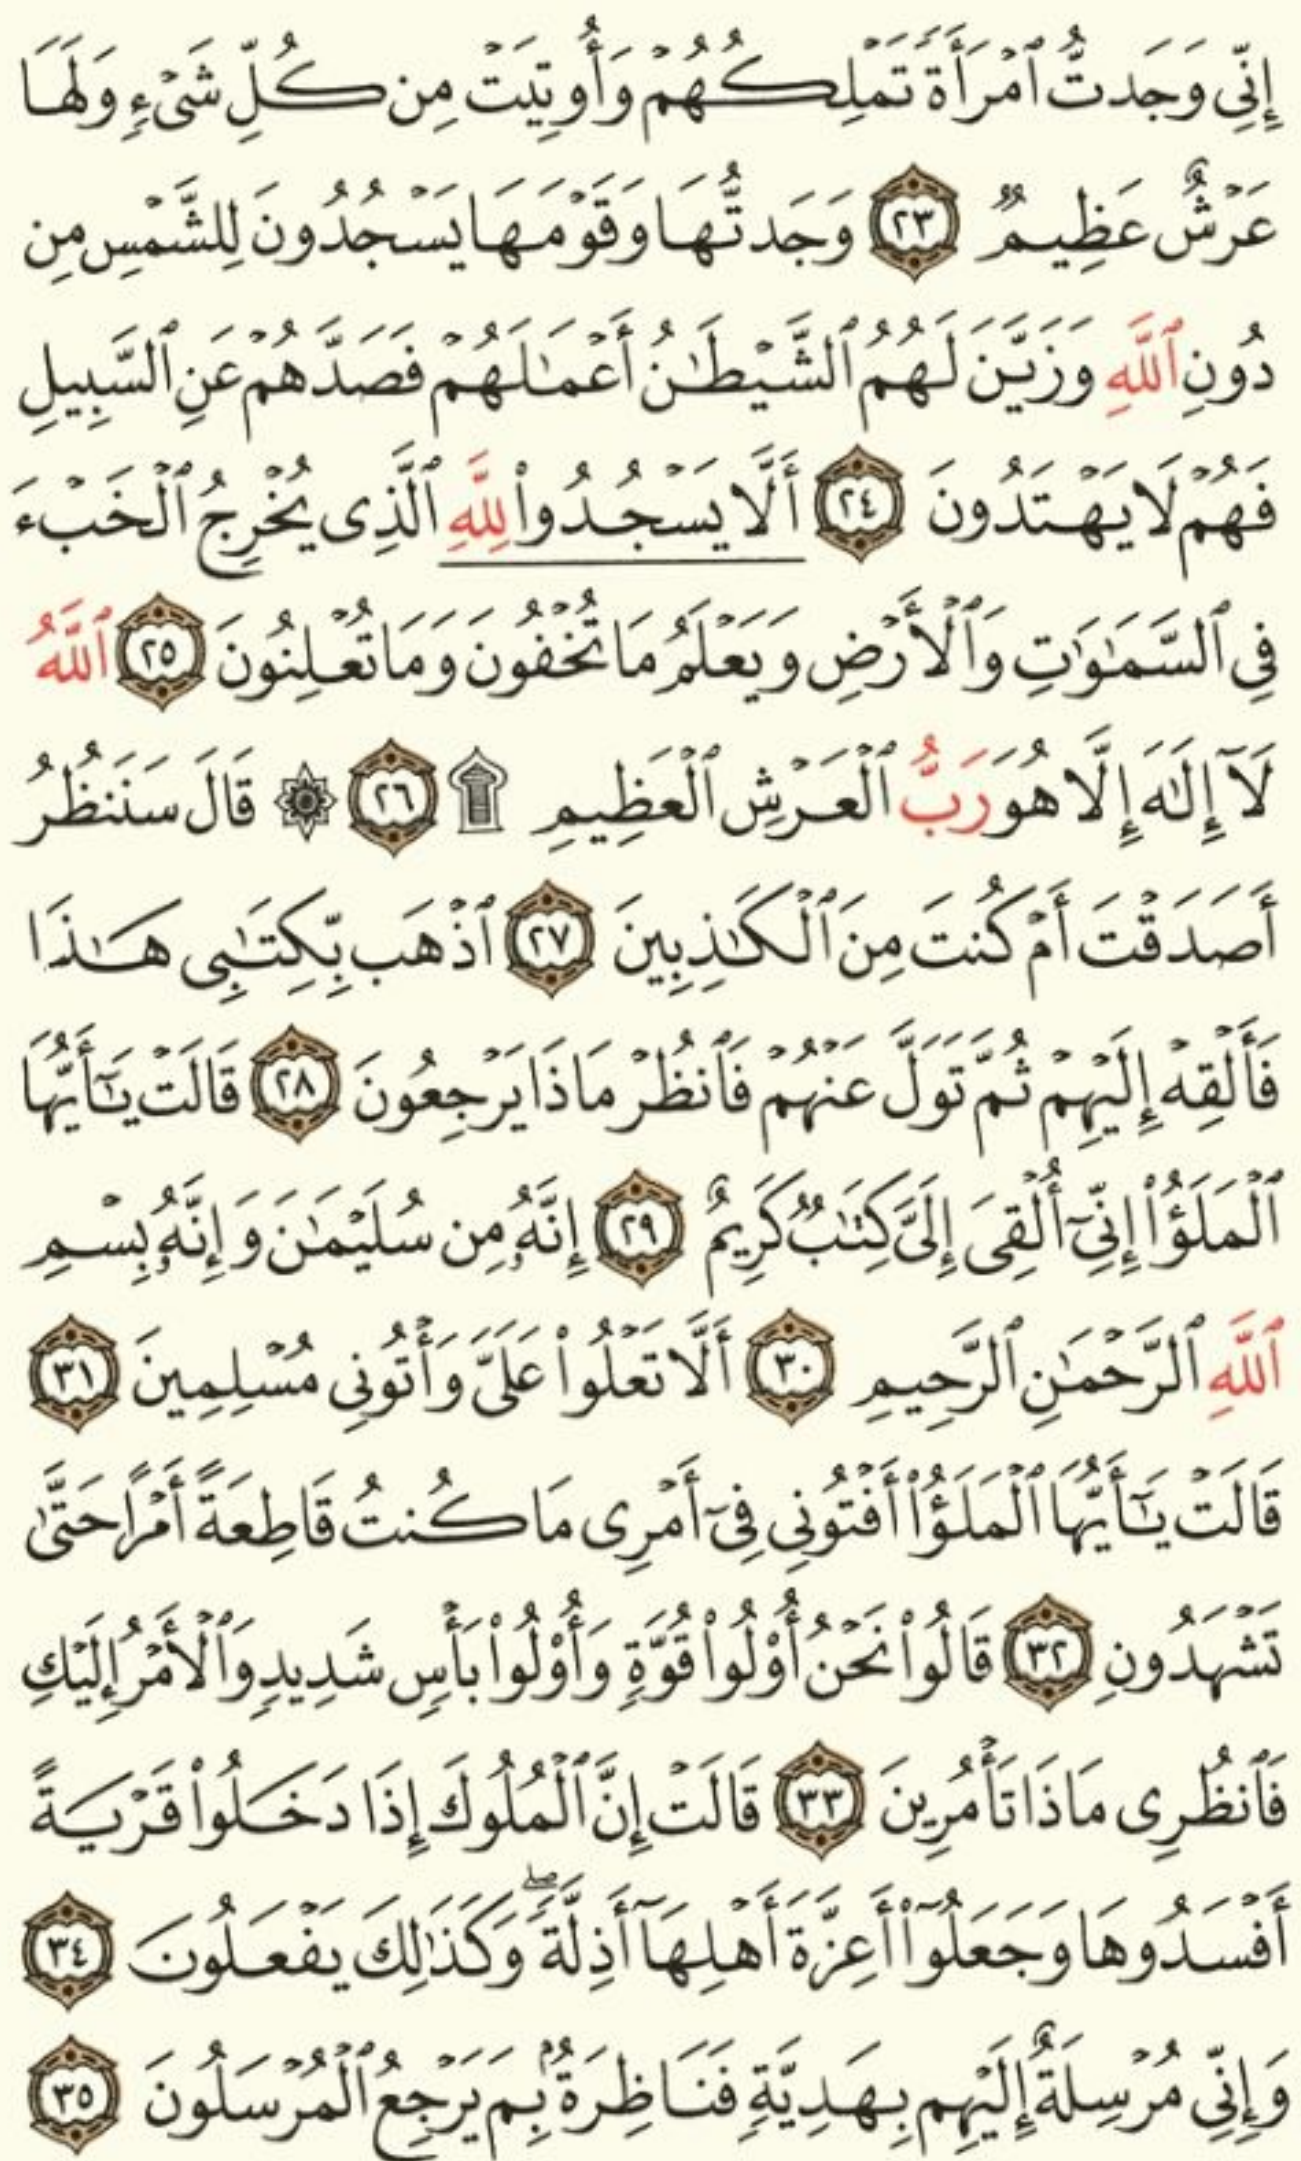 إِنِّي وَجَدتُّ ٱمْرَأَةً تَمْلِكُهُمْ وَأُوتِيَتْ مِن كُلِّ شَىْءٍ وَلَهَا
عَرْشٌ عَظِيمٌ ٢٣ وَجَدتُّهَا وَقَوْمَهَا يَسْجُدُونَ لِلشَّمْسِ مِن
دُونِ ٱللَّهِ وَزَيَّنَ لَهُمُ ٱلشَّيْطَٰنُ أَعْمَٰلَهُمْ فَصَدَّهُمْ عَنِ ٱلسَّبِيلِ
فَهُمْ لَا يَهْتَدُونَ ٢٤ أَلَّا يَسْجُدُوا۟ لِلَّهِ ٱلَّذِى يُخْرِجُ ٱلْخَبْءَ
فِى ٱلسَّمَٰوَٰتِ وَٱلْأَرْضِ وَيَعْلَمُ مَا تُخْفُونَ وَمَا تُعْلِنُونَ ٢٥ ٱللَّهُ
لَآ إِلَٰهَ إِلَّا هُوَ رَبُّ ٱلْعَرْشِ ٱلْعَظِيمِ ۩ ٢٦ ۞ قَالَ سَنَنظُرُ
أَصَدَقْتَ أَمْ كُنتَ مِنَ ٱلْكَٰذِبِينَ ٢٧ ٱذْهَب بِّكِتَٰبِى هَٰذَا
فَأَلْقِهْ إِلَيْهِمْ ثُمَّ تَوَلَّ عَنْهُمْ فَٱنظُرْ مَاذَا يَرْجِعُونَ ٢٨ قَالَتْ يَٰٓأَيُّهَا
ٱلْمَلَؤُا۟ إِنِّىٓ أُلْقِىَ إِلَىَّ كِتَٰبٌ كَرِيمٌ ٢٩ إِنَّهُۥ مِن سُلَيْمَٰنَ وَإِنَّهُۥ بِسْمِ
ٱللَّهِ ٱلرَّحْمَٰنِ ٱلرَّحِيمِ ٣٠ أَلَّا تَعْلُوا۟ عَلَىَّ وَأْتُونِى مُسْلِمِينَ ٣١
قَالَتْ يَٰٓأَيُّهَا ٱلْمَلَؤُا۟ أَفْتُونِى فِىٓ أَمْرِى مَا كُنتُ قَاطِعَةً أَمْرًا حَتَّىٰ
تَشْهَدُونِ ٣٢ قَالُوا۟ نَحْنُ أُو۟لُوا۟ قُوَّةٍ وَأُو۟لُوا۟ بَأْسٍ شَدِيدٍ وَٱلْأَمْرُ إِلَيْكِ
فَٱنظُرِى مَاذَا تَأْمُرِينَ ٣٣ قَالَتْ إِنَّ ٱلْمُلُوكَ إِذَا دَخَلُوا۟ قَرْيَةً
أَفْسَدُوهَا وَجَعَلُوٓا۟ أَعِزَّةَ أَهْلِهَآ أَذِلَّةً ۖ وَكَذَٰلِكَ يَفْعَلُونَ ٣٤
وَإِنِّى مُرْسِلَةٌ إِلَيْهِم بِهَدِيَّةٍ فَنَاظِرَةٌۢ بِمَ يَرْجِعُ ٱلْمُرْسَلُونَ ٣٥